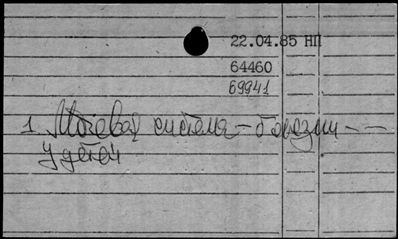 22.04.85 НП
64460
69941
1 Мочевая система - болезни - -
у детей